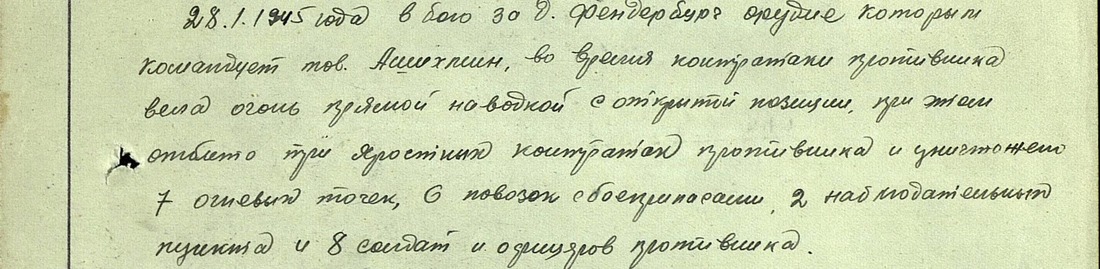 28.1.1945 года в бою за д. Фендербург орудие которым
командует тов. Ашихмин, во время контратаки противника
вела огонь прямой наводкой с открытой позиции, при этом
отбито три яростных контратак противника и уничтожено
7 огневых точек, 6 повозок с боеприпасами, 2 наблюдательных
пункта и 8 солдат и офицеров противника.